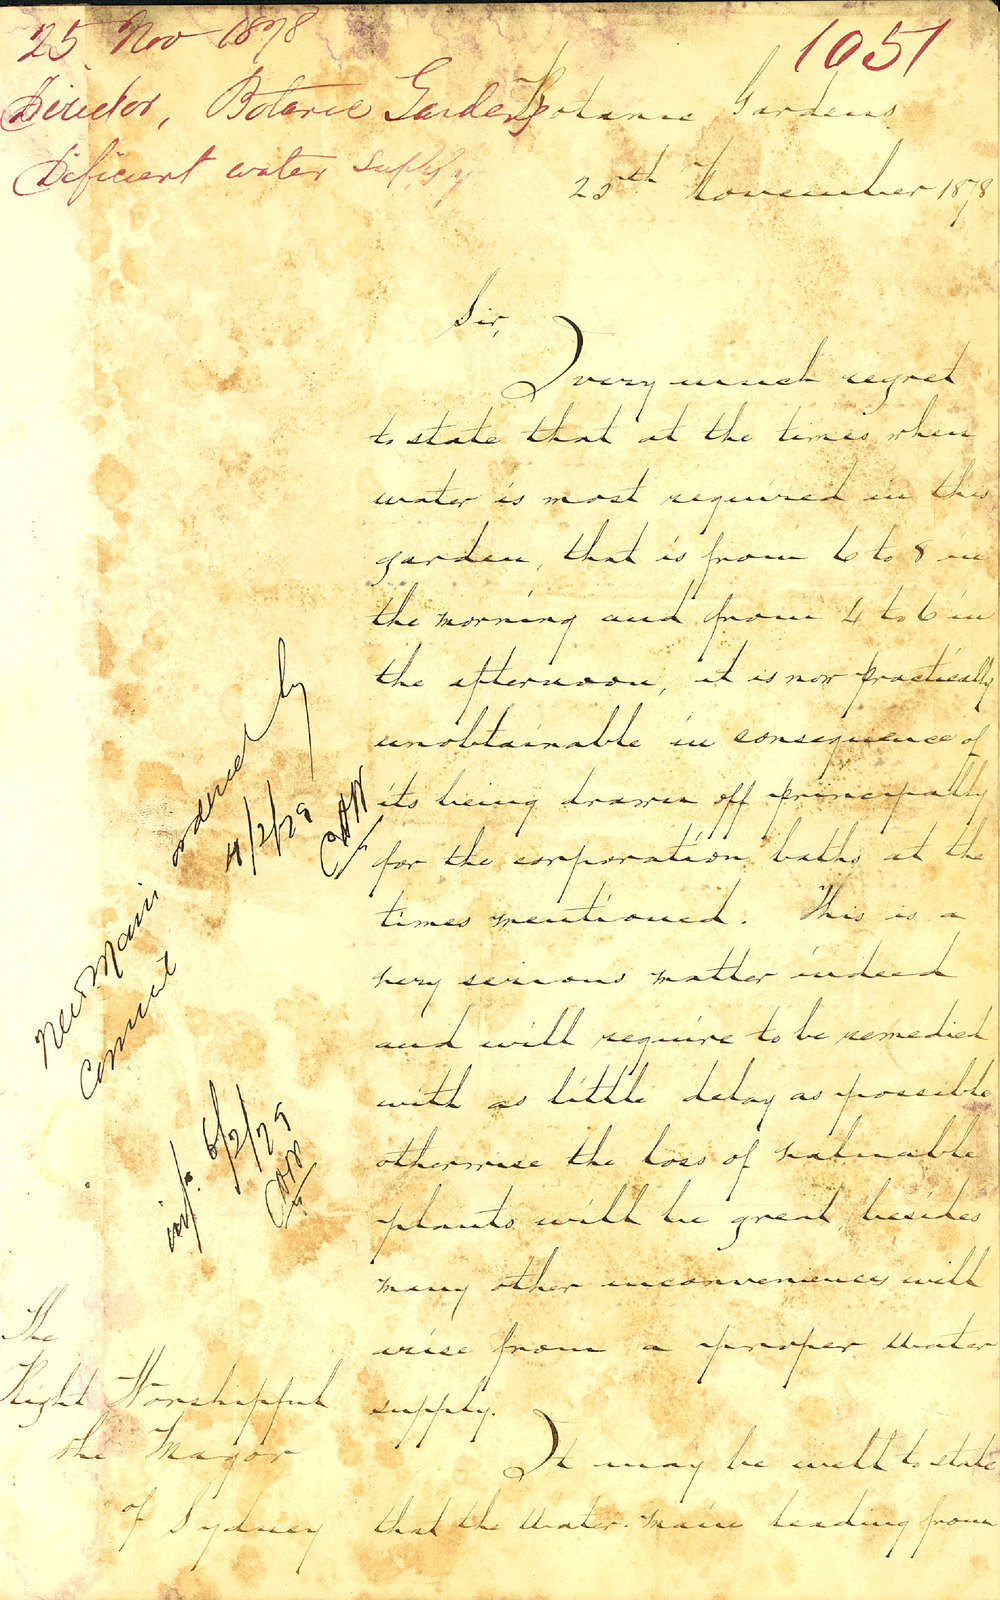 25 Nov 1878
1051
Director, Botanic Gardens
Deficient water supply
Botanic Gardens
25th November 1878
Sir,
I very much regret
to state that at the times when
water is most required in this
garden, that is from 6 to 8 in
the morning and from 4 to 6 in
the afternoon, it is now practically
unobtainable in consequence of
its being drawn off principally
for the corporation baths at the
times mentioned. This is a
very serious matter indeed
and will require to be remedied
with as little delay as possible
otherwise the loss of valuable
plants will be great, besides
many other inconveniences will
arise from a proper water
supply.
It may be well to state
that the water main leading from
New Main ordered by
4/2/79
6/2/79
The
Right Worshipful
the Mayor
of Sydney